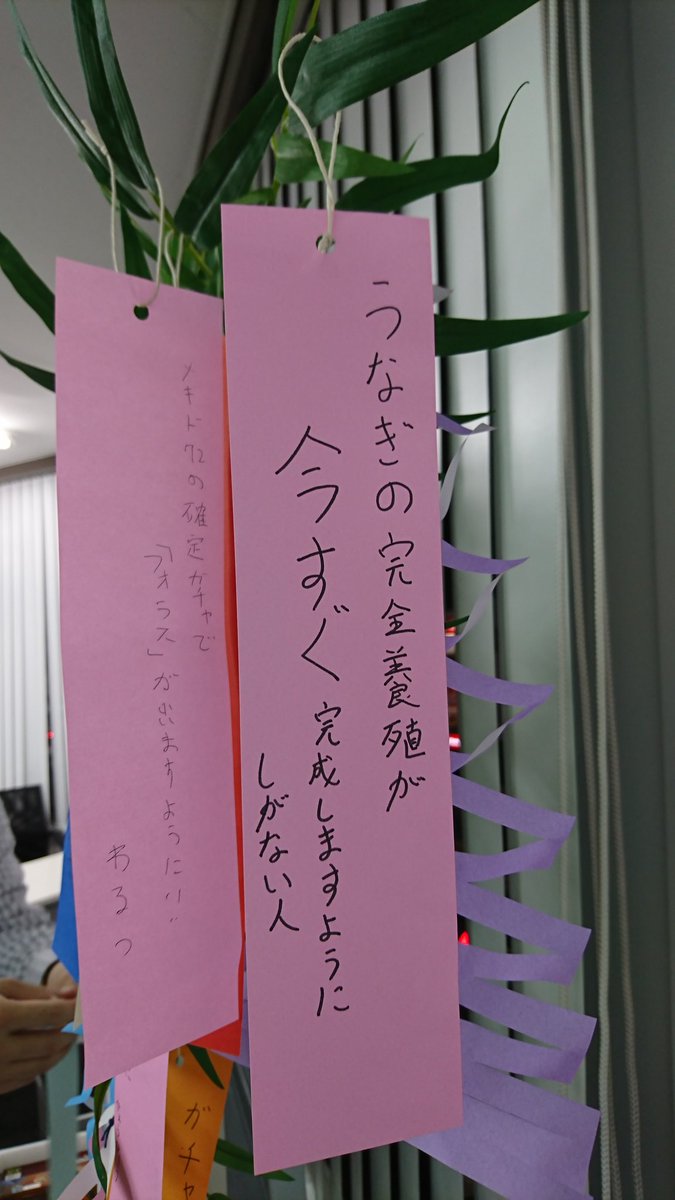 うなぎの完全養殖が
今すぐ完成しますように
しがない人
メギド72の確定ガチャで
「フォラス」が出ますように!!
わるつ
ガチャ